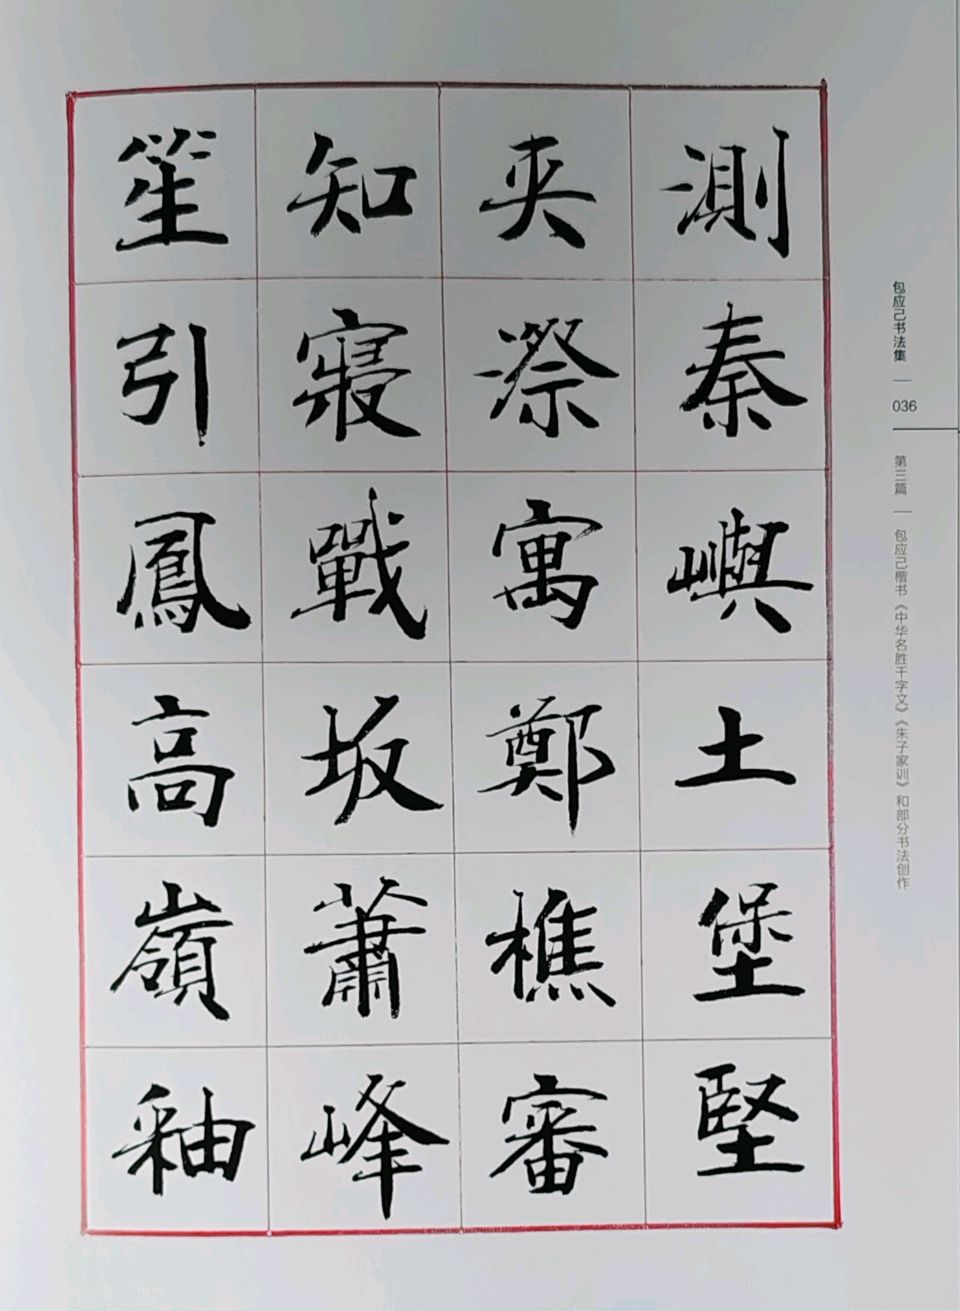 測秦嶼土堡堅
夾漈寓鄭樵審
知寢戰坂蕭峰
笙引鳳高嶺釉
包应己书法集 — 036
第三篇 — 包应己楷书《中华名胜千字文》《朱子家训》和部分书法创作